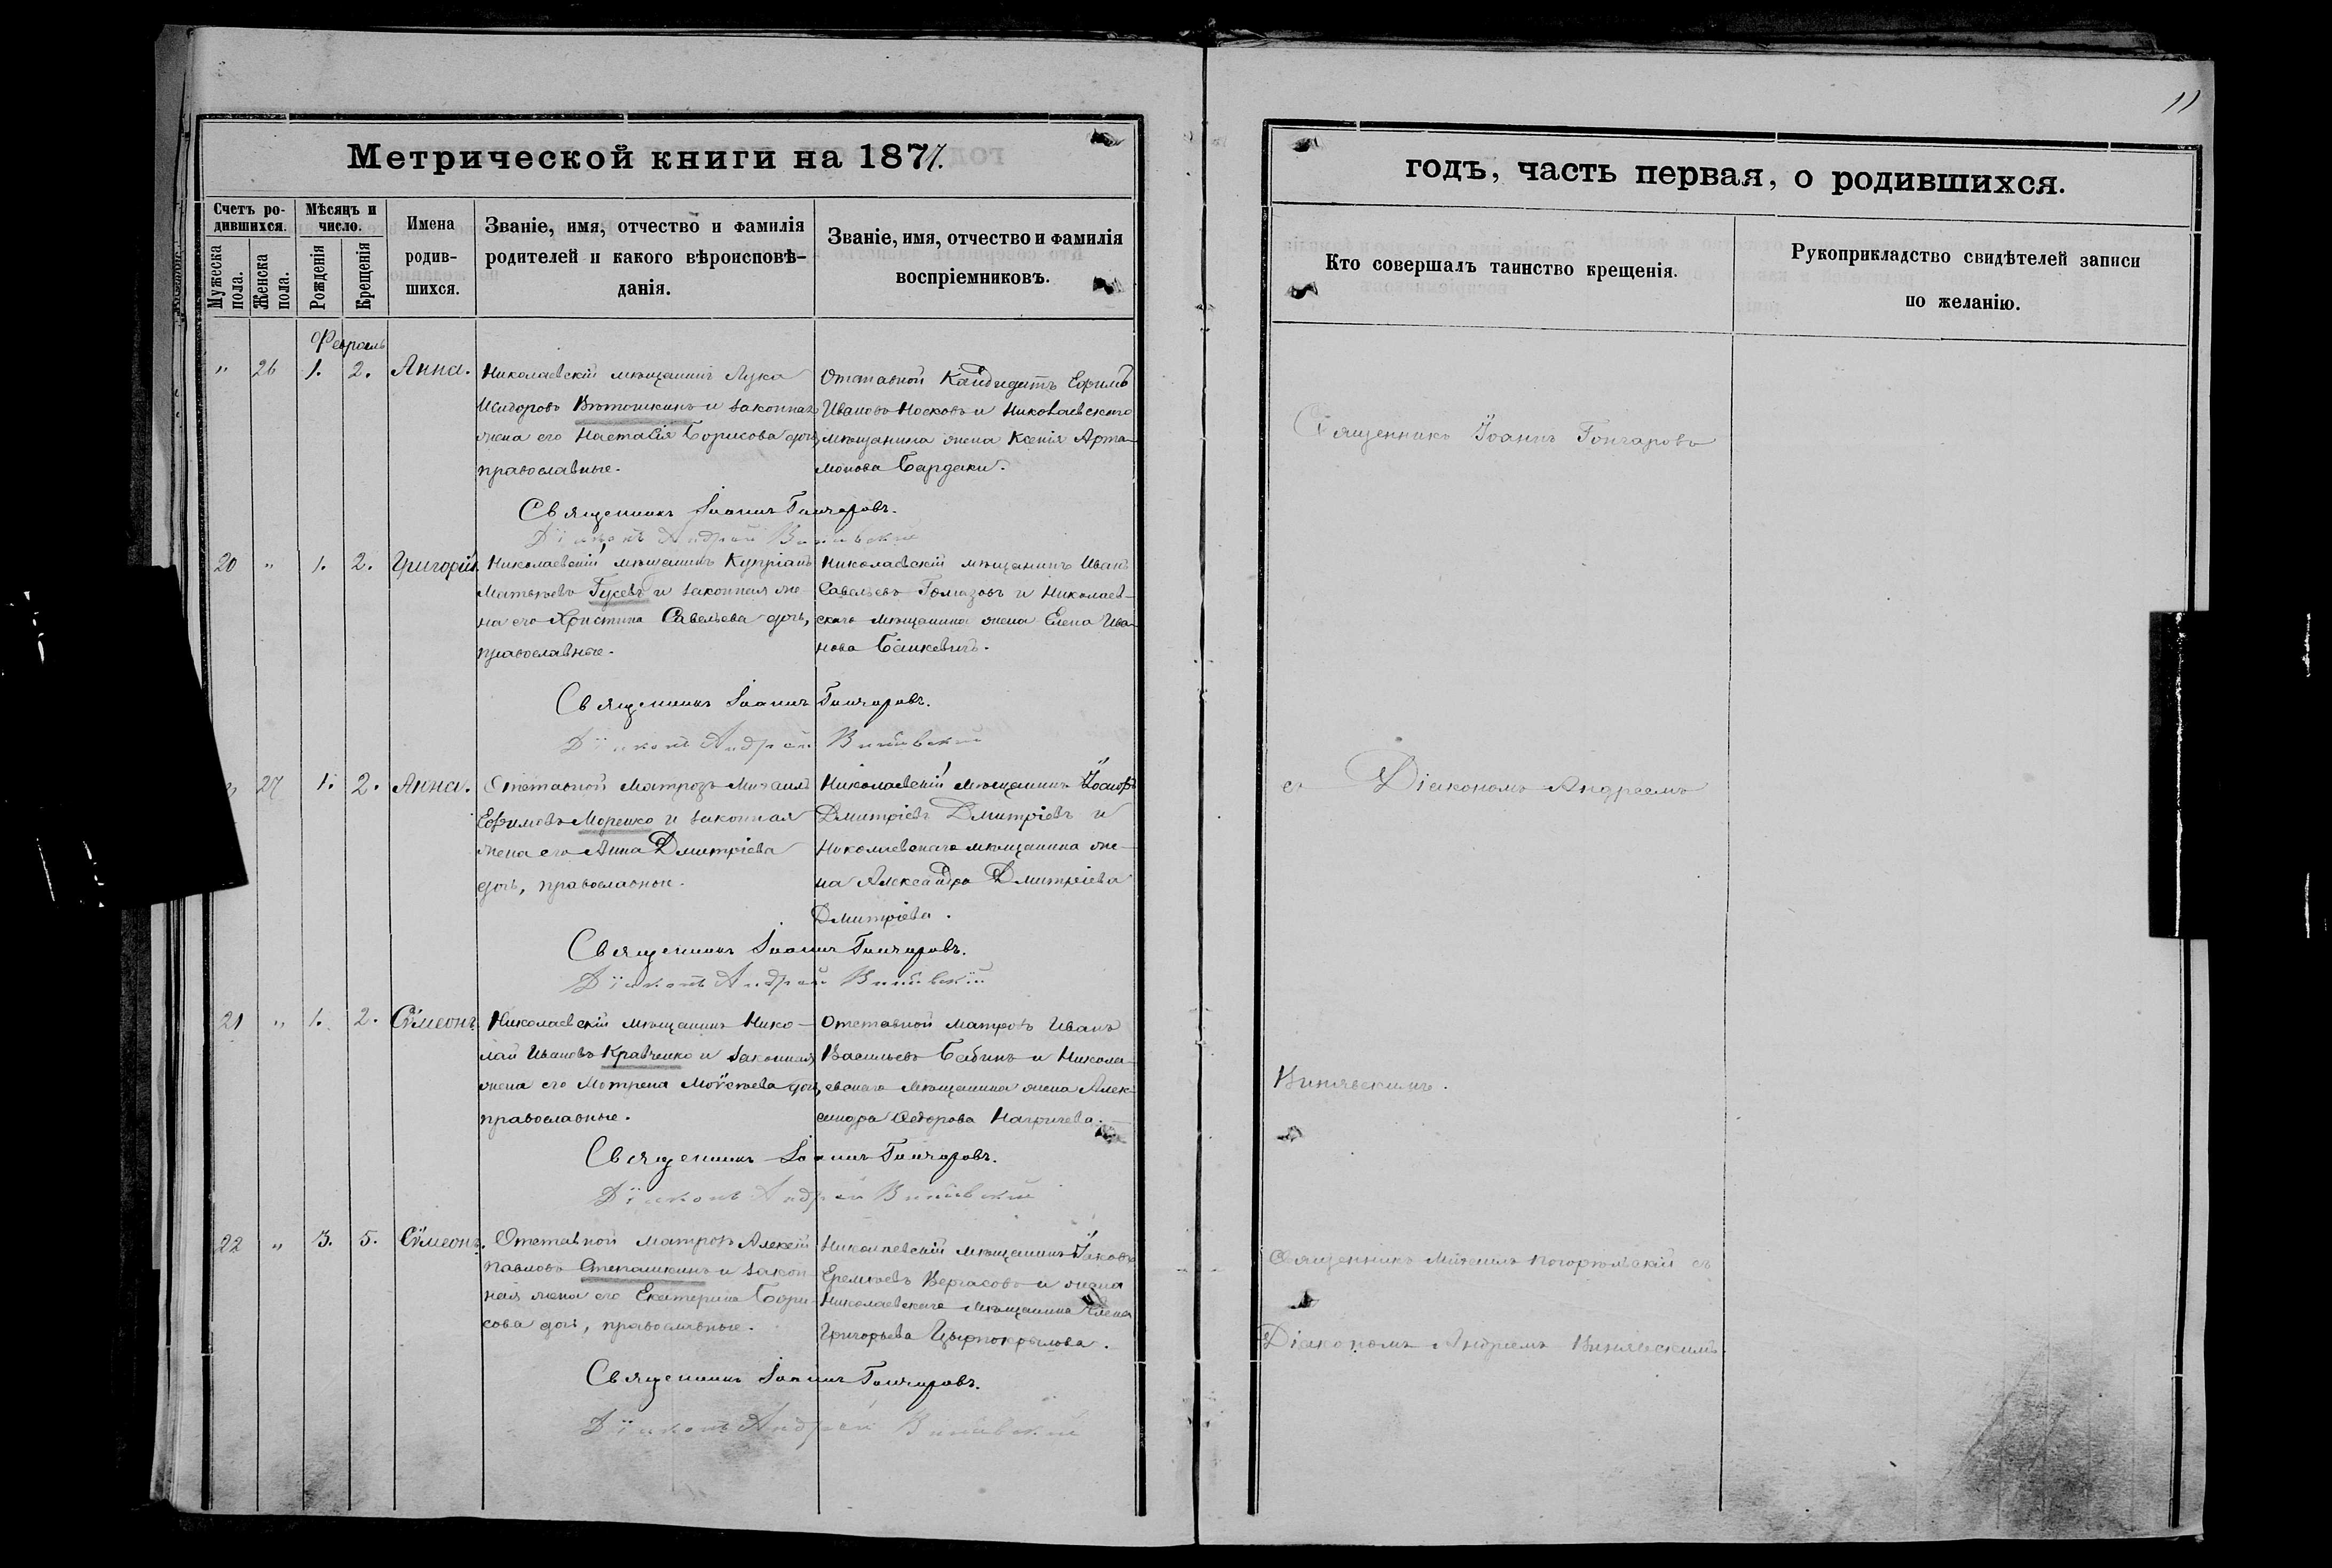 11
Метрической книги на 1877.
годъ, часть первая, о родившихся.
Счетъ ро-
дившихся.
Мужеска
пола.
Женска
пола.
Мѣсяцъ и
число.
Рожденія
Крещенія
Имена
родив-
шихся.
Званіе, имя, отчество и фамилія
родителей и какого вѣроисповѣ-
данія.
Званіе, имя, отчество и фамилія
воспріемниковъ.
Кто совершалъ таинство крещенія.
Рукоприкладство свидѣтелей записи
по желанію.
Февраль
" 26 1. 2. Анна.
Николаевскій мѣщанинъ Лука
Исидоровъ Вѣтошкинъ и законная
жена его Настасія Борисова дочь,
православные.
Отставной Кандидатъ Ефимъ
Ивановъ Носковъ и Николаевскаго
мѣщанина жена Ксенія Арта-
монова Бардаки.
Священникъ Іоаннъ Гончаровъ
Священникъ Іоаннъ Гончаровъ.
Діаконъ Андрей
20 " 1. 2. Григорій.
Николаевскій мѣщанинъ Купріанъ
Матвѣевъ Гусевъ и законная же-
на его Христина Савельева дочь,
православные.
Николаевскій мѣщанинъ Иванъ
Савельевъ и Николаев-
скаго мѣщанина жена Елена Ива-
нова
Священникъ Іоаннъ Гончаровъ.
Діаконъ Андрей
" 27 1. 2. Анна.
Отставной Матрозъ Михаилъ
Ефимовъ Морешко и законная
жена его Анна Дмитріева
дочь, православные.
Николаевскій мѣщанинъ Іосифъ
Дмитріевъ Дмитріевъ и
Николаевскаго мѣщанина же-
на Александра Дмитріева
Дмитріева.
съ Діакономъ Андреемъ
Священникъ Іоаннъ Гончаровъ.
Діаконъ Андрей
21 " 1. 2. Сѵмеонъ.
Николаевскій мѣщанинъ Нико-
лай Ивановъ Кравченко и законная
жена его Мотрена Моѵсеева дочь,
православные.
Отставной матрозъ Иванъ
Васильевъ Бабинъ и Никола-
евскаго мѣщанина жена Алек-
сандра Ѳедорова
Винявскимъ.
Священникъ Іоаннъ Гончаровъ.
Діаконъ Андрей
22 " 3. 5. Сѵмеонъ.
Отставной матрозъ Алексій
Павловъ Степашкинъ и закон-
ная жена его Екатерина Бори-
сова дочь, православные.
Николаевскій мѣщанинъ Іаковъ
Еремѣевъ и жена
Николаевскаго мѣщанина Елена
Григорьева
Священникъ Михаилъ Погорѣльскій съ
Діакономъ Андреемъ Винявскимъ
Священникъ Іоаннъ Гончаровъ.
Діаконъ Андрей